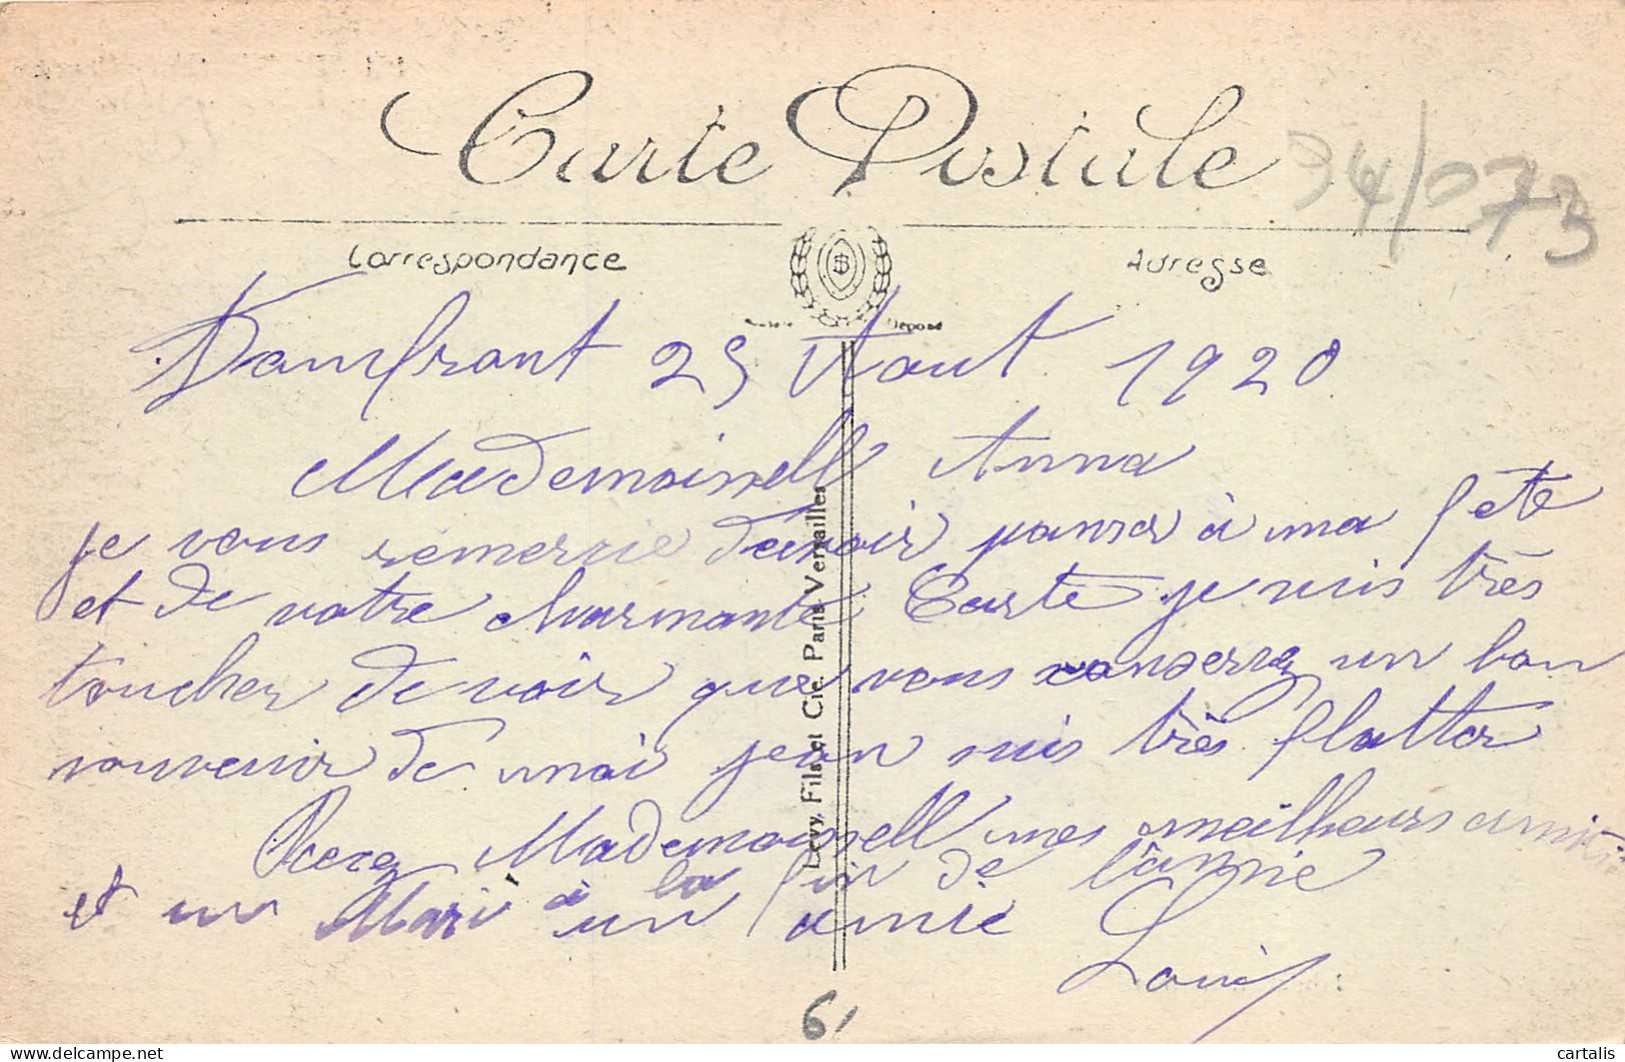 Carte Postale
94/073
Correspondance
Adresse
Déposé
Damfront 25 Aout 1920
Mademoisell Anna
je vous remercie davoir panser à ma fete
et de votre charmante Carte je suis très
toucher de voir que vous conserrez un bon
souvenir de moi jean suis très flatter
Recez Mademoisell mes meilheurs amitié
à la fin de l'année
et un Mari un amie
Louis
Lévy, Fils et Cie. Paris-Versailles
6,
cartalis